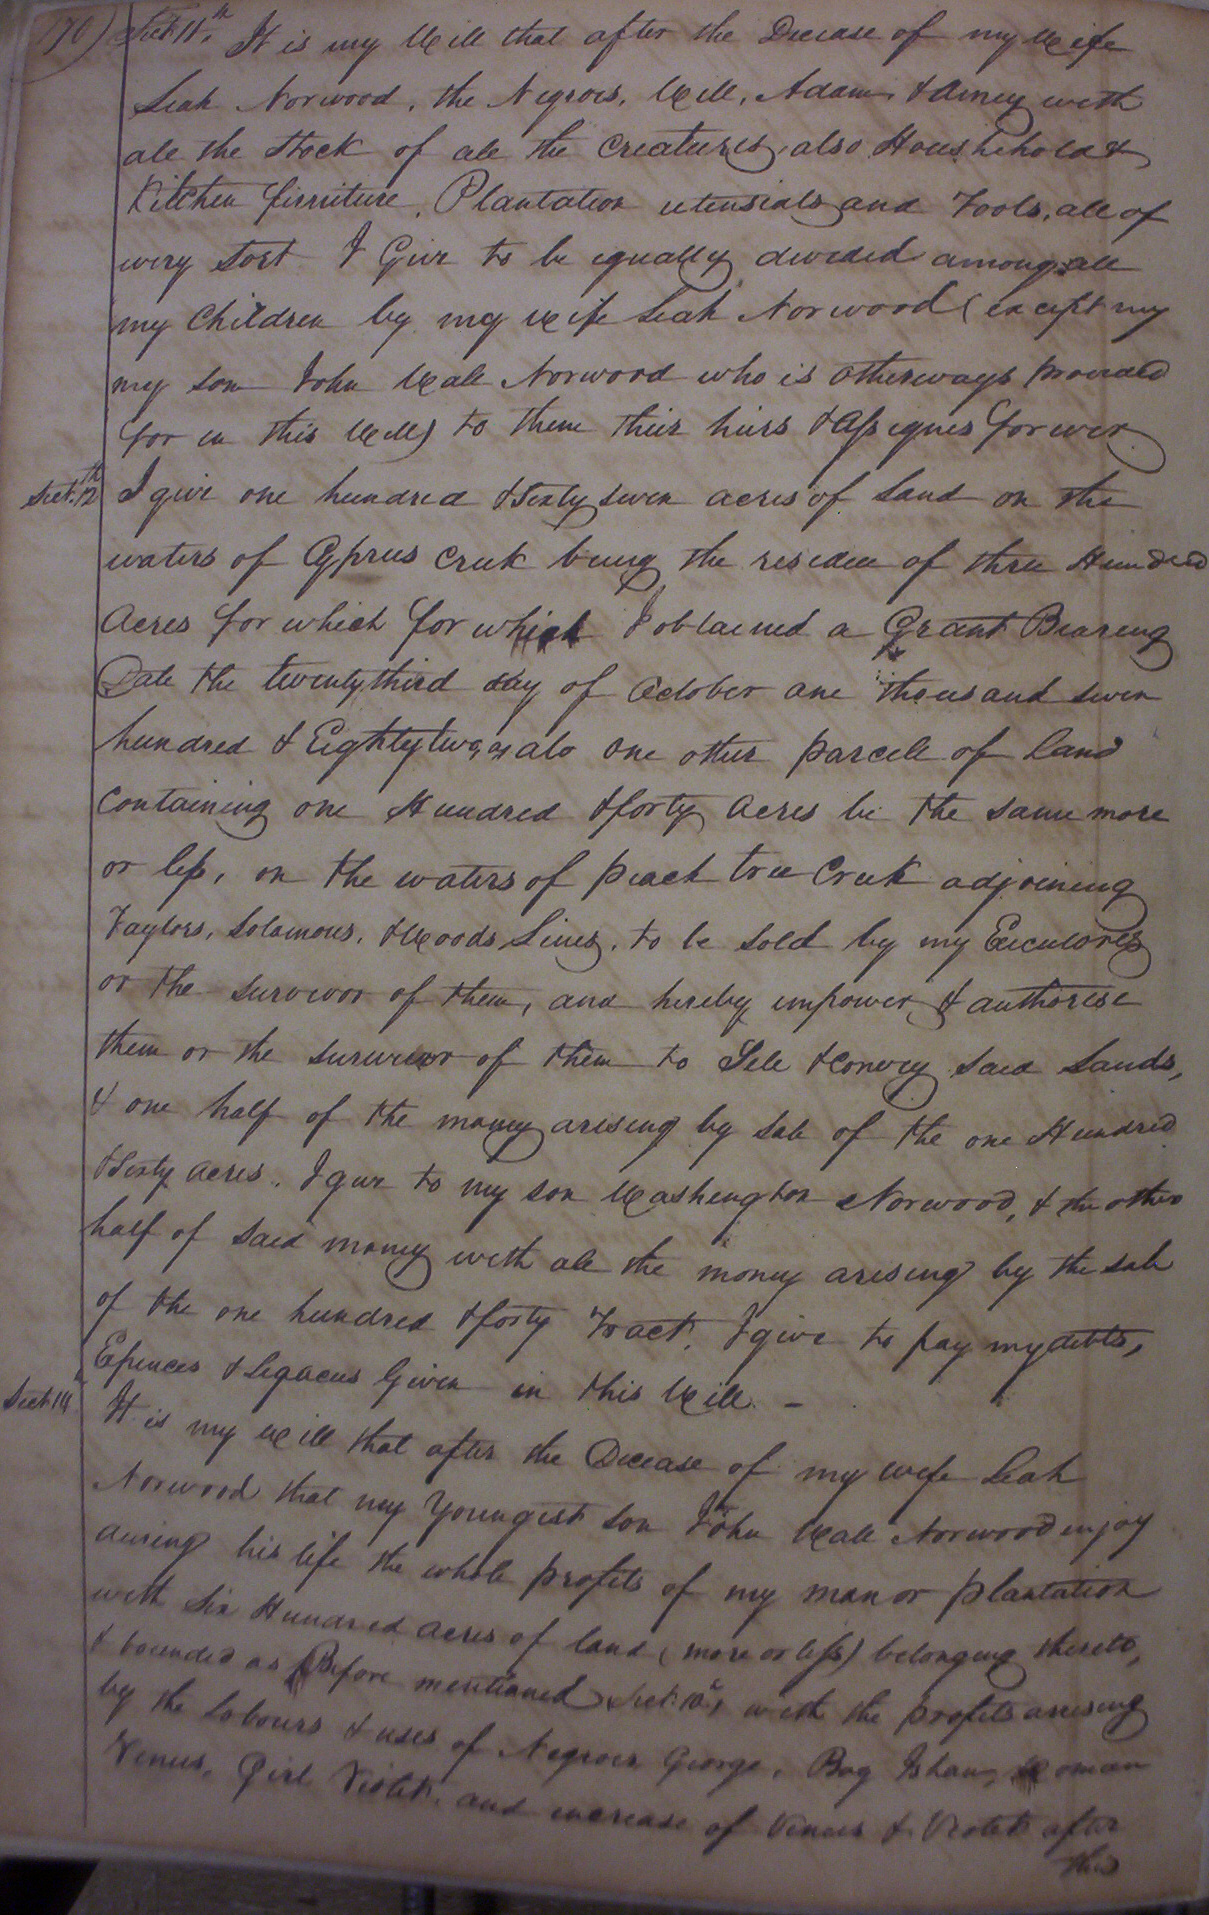 170) Sect. 11th. It is my Will that after the Decease of my Wife
Leah Norwood, the Negroes, Will, Adam, & Amey with
all the Stock of all the Creatures, also Houshehold &
Kitchen firniture, Plantation utensials and Tools, all of
every Sort I Give to be equally devided among all
my Children by my Wife Leah Norwood (except my
my son John Wall Norwood who is otherways provided
for in this Will) to them their hiers & Assignes forever.
Sect. 12th I give one hundred & Sixty seven acres of Land on the
waters of Cyprus Creek being the residue of three Hundred
Acres for which for which I obtained a Grant Bearing
Date the twenty third day of October one thousand seven
hundred & Eighty two, as also one other parcell of Land
Containing one Hundred & forty Acres be the same more
or less, on the waters of peach tree Creek adjoining
Taylors, Solomons, & Woods Lines, to be Sold by my Executores
or the survivor of them, and hereby impower & authorise
them or the survivor of them to Sele & Convey said Lands,
& one half of the money arising by sale of the one Hundred
& Sixty acres, I give to my son Washington Norwood, & the other
half of said money with all the money arising by the sale
of the one hundred & forty Tract, I give to pay my debts,
Epences & Legacies Given in this Will. -
Sect 14 It is my will that after the Decease of my wife Leah
Norwood that my Youngest son John Wall Norwood enjoy
during his life the whole profits of my manor plantation
with Six Hundred acres of land (more or less) belonging thereto,
& bounded as Before mentioned Sect. 10th, with the profits arising
by the Labours & uses of Negroes George, Boy Isham, Woman
Venus, Girl Violet, and increase of Venus & Violet after
this